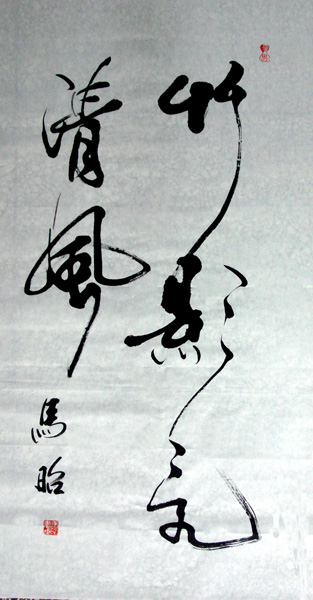 竹影
清風
馬昭